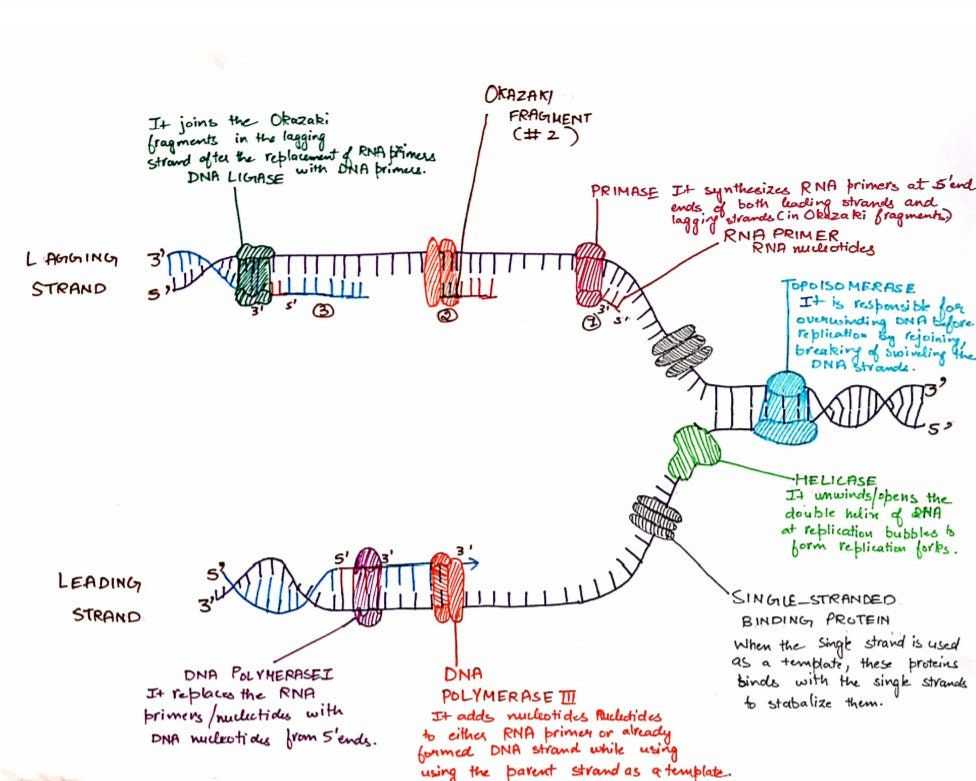 OKAZAKI
FRAGMENT
(#2)
It joins the Okazaki
fragments in the lagging
strand after the replacement of RNA primers
DNA LIGASE with DNA primers.
PRIMASE It synthesizes RNA primers at 5'end
ends of both leading strands and
lagging strands (in Okazaki fragments)
RNA PRIMER
RNA nucleotides
LAGGING
STRAND
3'
5'
3'
5'
③
②
①
3'
5'
TOPOISOMERASE
It is responsible for
overwinding DNA before
replication by rejoining,
breaking of swiveling the
DNA strands.
3'
5'
HELICASE
It unwinds/opens the
double helix of DNA
at replication bubbles to
form replication forks.
LEADING
STRAND
5'
3'
5'
3'
3'
SINGLE-STRANDED
BINDING PROTEIN
When the single strand is used
as a template, these proteins
binds with the single strands
to stabalize them.
DNA POLYMERASE I
It replaces the RNA
primers/nucletides with
DNA nucleotides from 5'ends.
DNA
POLYMERASE III
It adds nucleotides Nucletides
to either RNA primer or already
formed DNA strand while using
using the parent strand as a template.